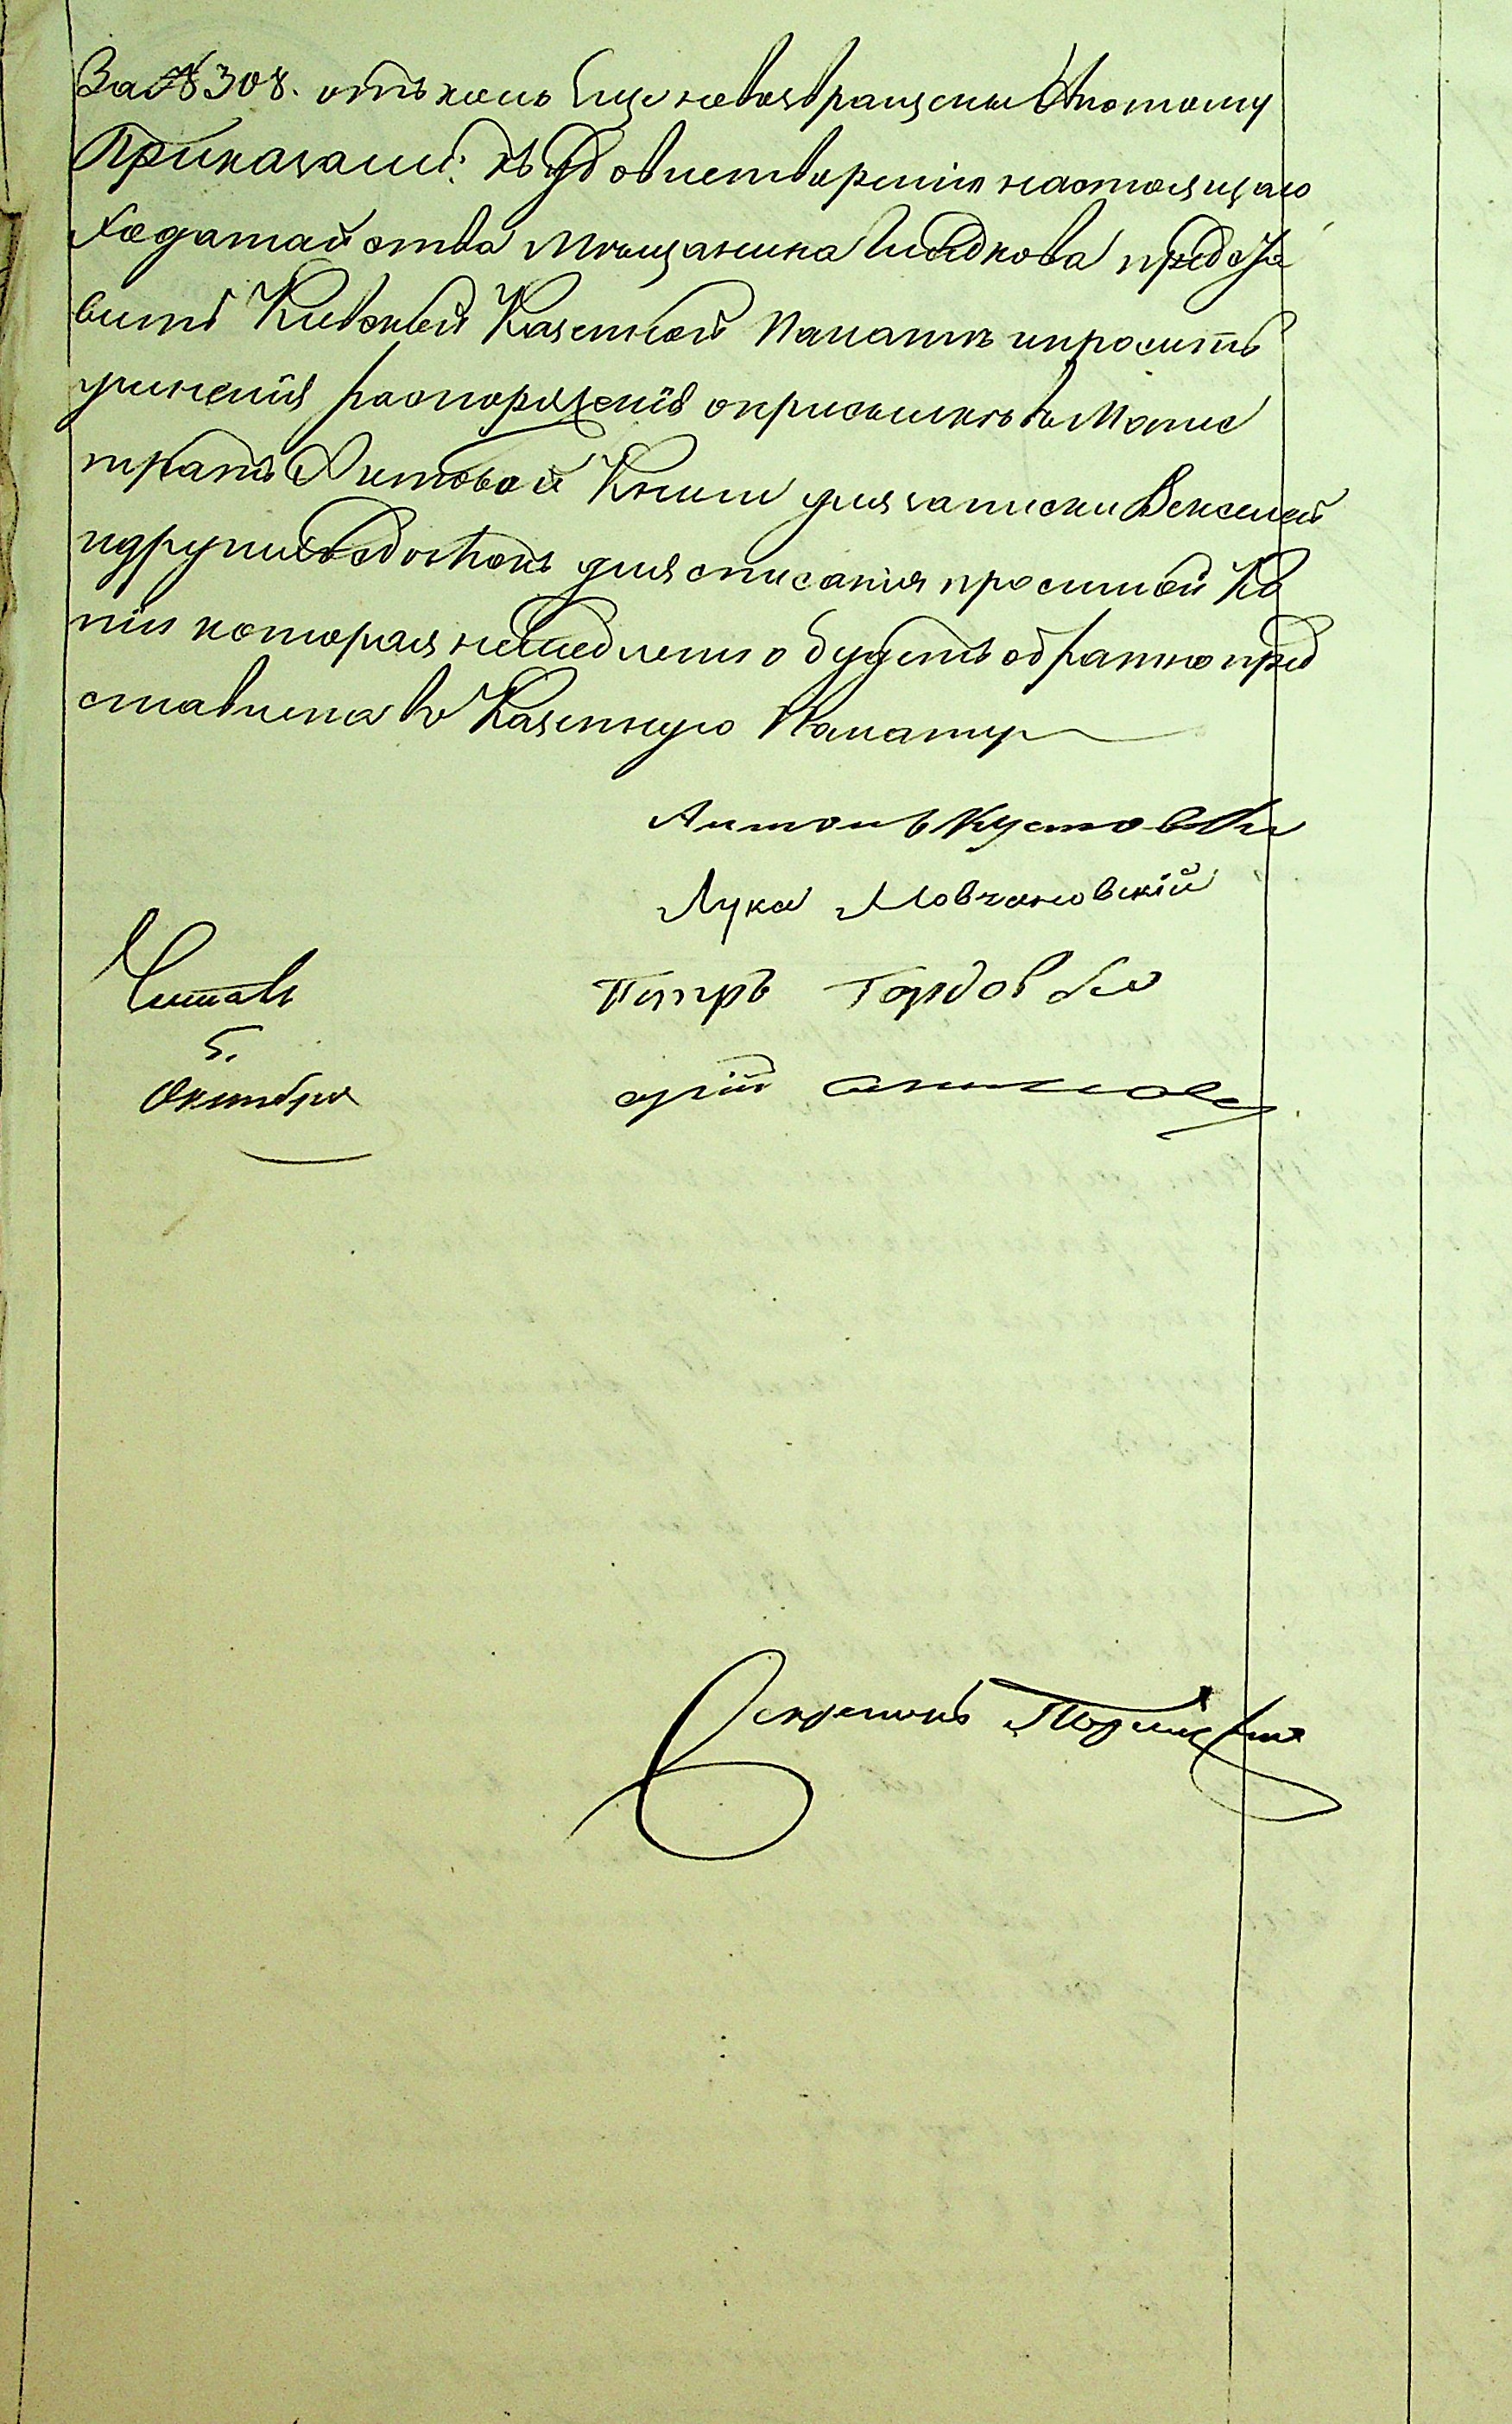 За № 308. отъ коль еще не возвращены А потому
Приказали: къ удовлетворенію настоящаго
ходатайства мѣщанина предста
вить Кіевской Казенной Палатѣ и просить
учиненія распоряженія о присылкѣ въ Магис
тратъ Актовой Книги для записки векселей
и другихъ для списанія просимой Ко
піи которая немедленно будетъ обратно пред
ставлена въ Казенную Палату
Антонъ
Лука Мовчановскій
Читалъ Петръ
5.
Октября
Секретарь